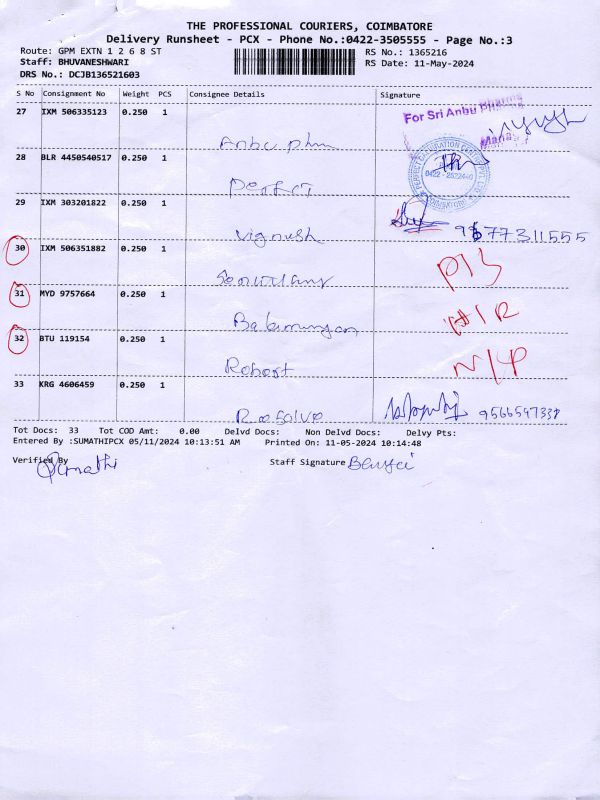 THE PROFESSIONAL COURIERS, COIMBATORE
Delivery Runsheet - PCX - Phone No.:0422-3505555 - Page No.:3
Route: GPM EXTN 1 2 6 8 ST RS No.: 1365216
Staff: BHUVANESHWARI RS Date: 11-May-2024
DRS No.: DCJB136521603
S No Consignment No Weight PCS Consignee Details Signature
27 IXM 506335123 0.250 1 For Sri Anbu Pharma
Anbu phm
28 BLR 4450540517 0.250 1 0422 - 2522440
Perfect
29 IXM 303201822 0.250 1
Vignesh
30 IXM 506351882 0.250 1
31 MYD 9757664 0.250 1
Balamurugan N/P
32 BTU 119154 0.250 1
Robert
33 KRG 4606459 0.250 1
Tot Docs: 33 Tot COD Amt: 0.00 Delvd Docs: Non Delvd Docs: Delvy Pts:
Entered By :SUMATHIPCX 05/11/2024 10:13:51 AM Printed On: 11-05-2024 10:14:48
Verified By Staff Signature
Sumathi